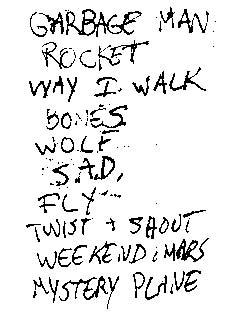 GARBAGE MAN
ROCKET
WAY I WALK
BONES
WOLF
S.A.D.
FLY
TWIST + SHOUT
WEEKEND : MARS
MYSTERY PLANE